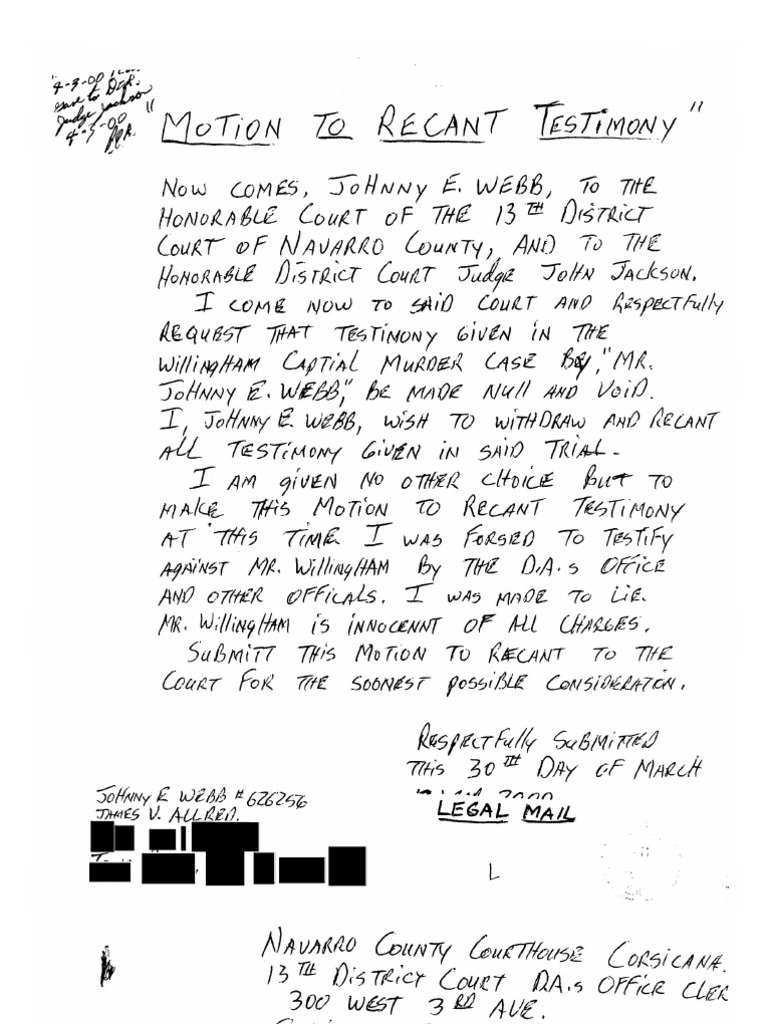 4-3-00
gave to Dep.
Judge Jackson
4-3-00
"MOTION TO RECANT TESTIMONY"
NOW COMES, JOHNNY E. WEBB, TO THE
HONORABLE COURT OF THE 13TH DISTRICT
COURT OF NAVARRO COUNTY, AND TO THE
HONORABLE DISTRICT COURT JUDGE JOHN JACKSON.
I COME NOW TO SAID COURT AND RESPECTFULLY
REQUEST THAT TESTIMONY GIVEN IN THE
WILLINGHAM CAPTIAL MURDER CASE BY, "MR.
JOHNNY E. WEBB," BE MADE NULL AND VOID.
I, JOHNNY E. WEBB, WISH TO WITHDRAW AND RECANT
ALL TESTIMONY GIVEN IN SAID TRIAL.
I AM GIVEN NO OTHER CHOICE BUT TO
MAKE THIS MOTION TO RECANT TESTIMONY
AT THIS TIME. I WAS FORSED TO TESTIFY
AGAINST MR. WILLINGHAM BY THE D.A.s OFFICE
AND OTHER OFFICALS. I WAS MADE TO LIE.
MR. WILLINGHAM IS INNOCENNT OF ALL CHARGES.
SUBMITT THIS MOTION TO RECANT TO THE
COURT FOR THE SOONEST POSSIBLE CONSIDERATION.
RESPECTFULLY SUBMITTED
THIS 30TH DAY OF MARCH
2000
JOHNNY E WEBB #626256
JAMES V. ALLRED.
LEGAL MAIL
NAVARRO COUNTY COURTHOUSE CORSICANA.
13TH DISTRICT COURT D.A.s OFFICE CLER
300 WEST 3RD AVE.